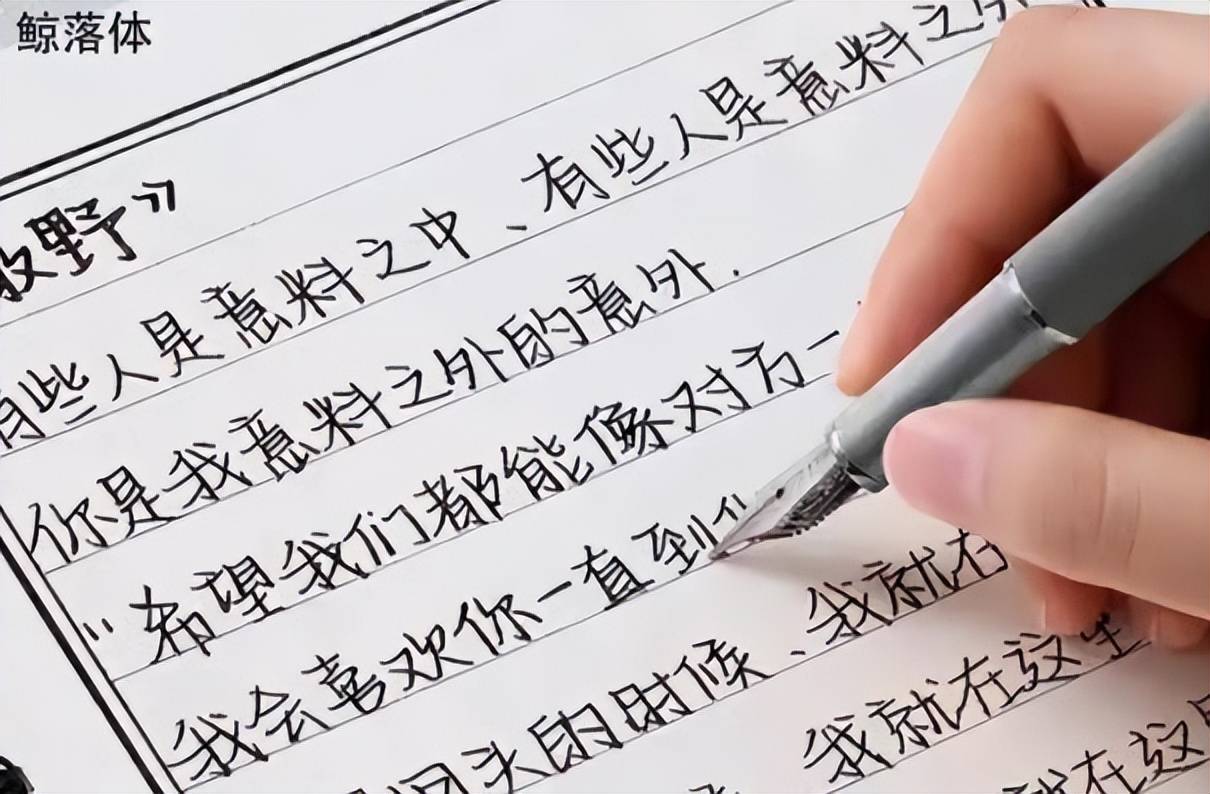 鲸落体
野》
有些人是意料之中、有些人是意料之外
你是我意料之外的意外.
"希望我们都能像对方一
我会喜欢你一直到
回头的时候、我就在
我就在这里
就在这里